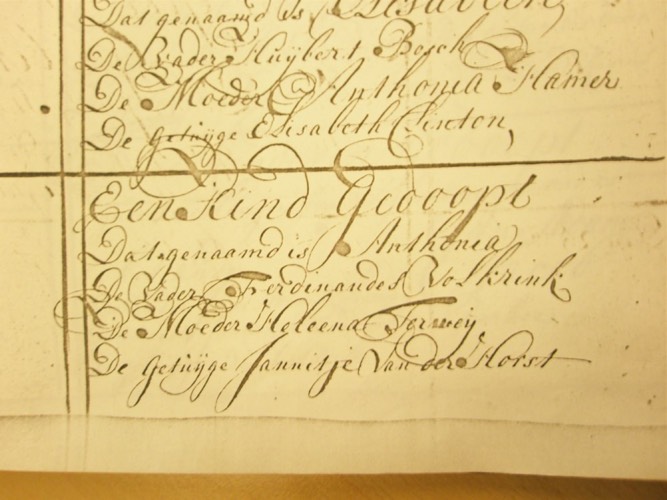 Dat genaamd is Elisabeth,
De Vader Huybert Bosch
De Moeder Anthonia Hamer
De getuijge Elisabeth Clinton,
Een Kind Gedoopt
Dat genaamd is Anthonia
De Vader Ferdinandes Volkrink
De Moeder Heleena Terweij
De getuijge Jannitje Van der Horst